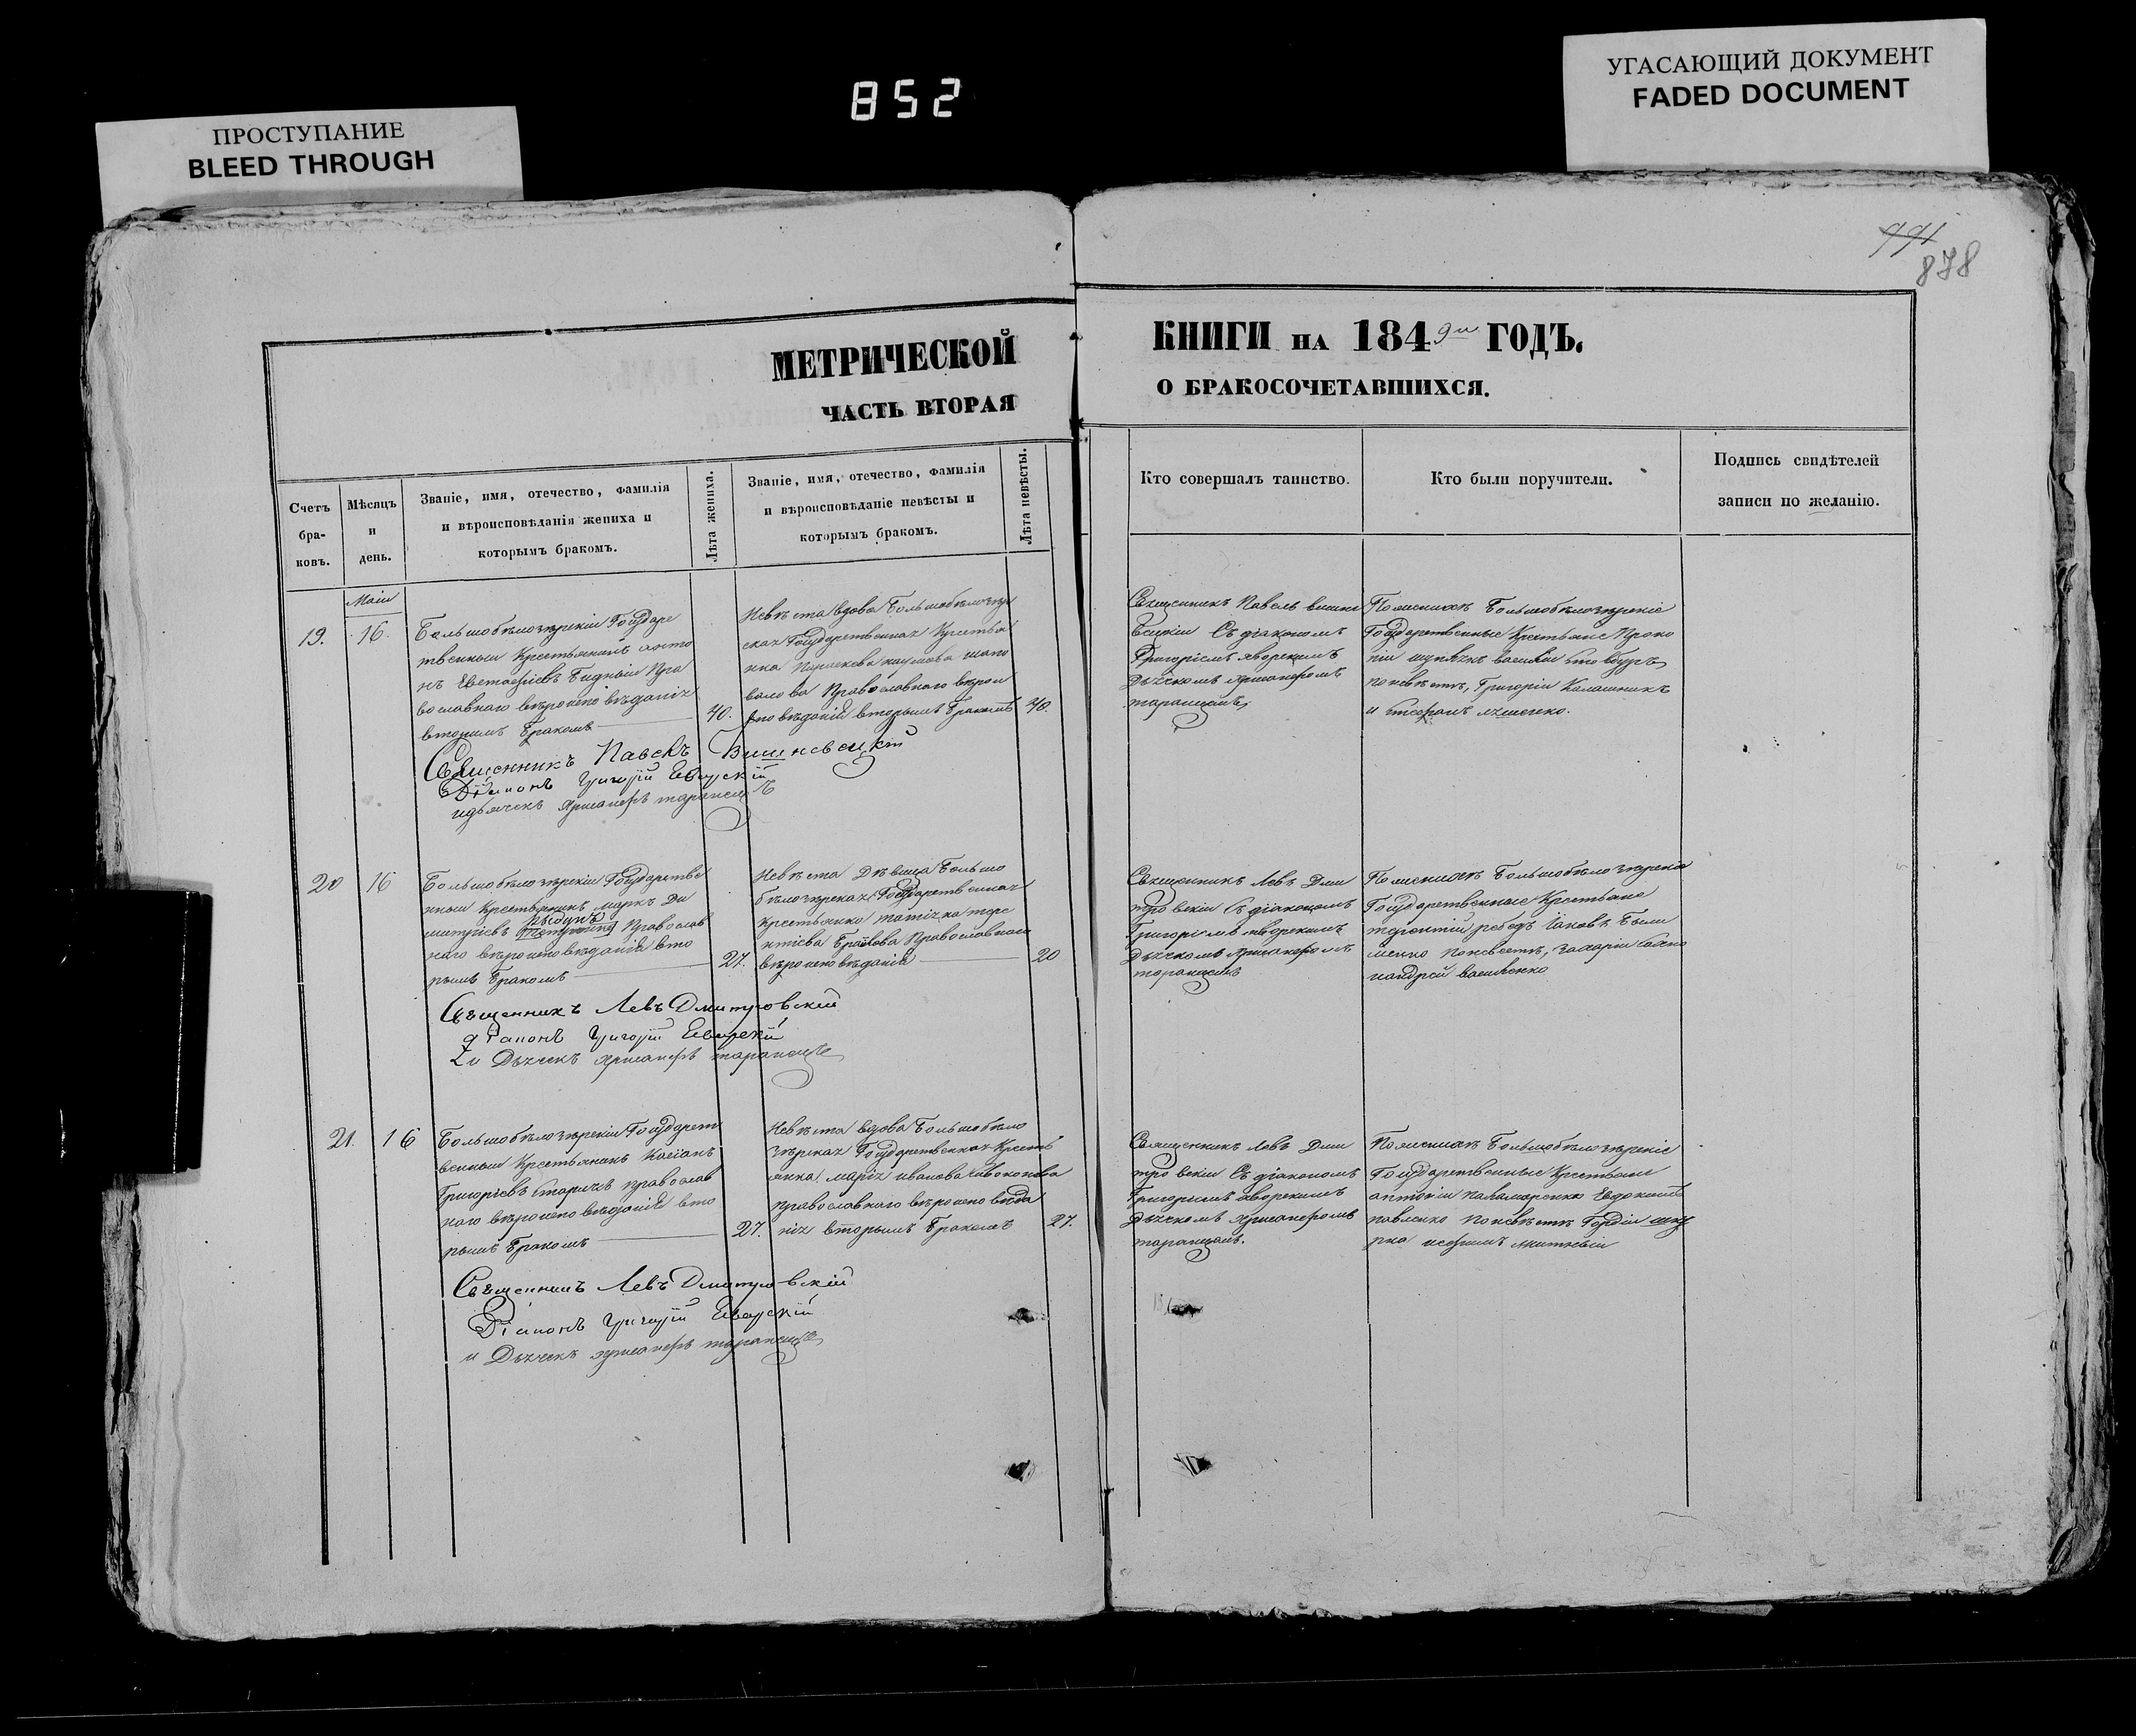 ПРОСТУПАНИЕ
BLEED THROUGH
852
УГАСАЮЩИЙ ДОКУМЕНТ
FADED DOCUMENT
991
878
МЕТРИЧЕСКОЙ
ЧАСТЬ ВТОРАЯ
КНИГИ НА 1849 ГОДЪ.
О БРАКОСОЧЕТАВШИХСЯ.
Счетъ браковъ.
Мѣсяцъ и день.
Званіе, имя, отечество, фамилія
и вѣроисповѣданія жениха и
которымъ бракомъ.
Лѣта жениха.
Званіе, имя, отечество, фамилія
и вѣроисповѣданіе невѣсты и
которымъ бракомъ.
Лѣта невѣсты.
Кто совершалъ таинство.
Кто были поручители.
Подпись свидѣтелей
записи по желанію.
Маія
19.
16.
Большобѣлозѣрскій Государс
твенный Крестьянинъ Анто
нъ Евстафіевъ Бидный Пра
вославнаго вѣроисповѣданія
вторымъ бракомъ
40.
Невѣста вдова Большобѣлозѣр
ская Государственная Крестья
нка Параскева наумова шапо
валова Православнаго вѣрои
сповѣданія вторымъ бракомъ
40.
Священникъ Павелъ Вишне
вецкій Съ діакономъ
Григоріемъ
Дьячкомъ
Поженихѣ Большобѣлозѣрскіе
Государственные Крестьяне Проко
пій
поневѣстѣ, Григорій Калашникъ
и Стефанъ
Священникъ Павелъ Вишневецкій
Діаконъ Григорій
идьячекъ
20
16
Большобѣлозѣрскій Государстве
нный Крестьянинъ маркъ Ди
митріевъ Православ
наго вѣроисповѣданія вто
рымъ бракомъ
27.
Невѣста Дѣвица Большо
бѣлозѣрская Государственная
Крестьянка
Православнаго
вѣроисповѣданія
20
Священникъ Левъ Дми
тровскій Съ діакономъ
Григоріемъ
Дьячкомъ
Поженихѣ Большобѣлозѣрскіе
Государственные Крестьяне
терентій Іаковъ
поневѣстѣ, Захарій
иандрей василенко
Священникъ Левъ Дмитровскій
діаконъ Григорій
и Дьячекъ
21.
16
Большобѣлозѣрскій Государст
венный Крестьянинъ Касіанъ
Григоріевъ Старичь православ
наго вѣроисповѣданія вто
рымъ бракомъ
27.
Невѣста вдова Большобѣло
зѣрская Государственная Кресть
янка марія иванова
православнаго вѣроисповѣда
нія вторымъ бракомъ
27.
Священникъ Левъ Дми
тровскій Съ діакономъ
Григоріемъ
Дьячкомъ
Поженихѣ Большобѣлозѣрскіе
Государственные Крестьяне
антоній Евдокимъ
павленко поневѣстѣ Гордій
Священникъ Левъ Дмитровскій
Діаконъ Григорій
и Дьячекъ